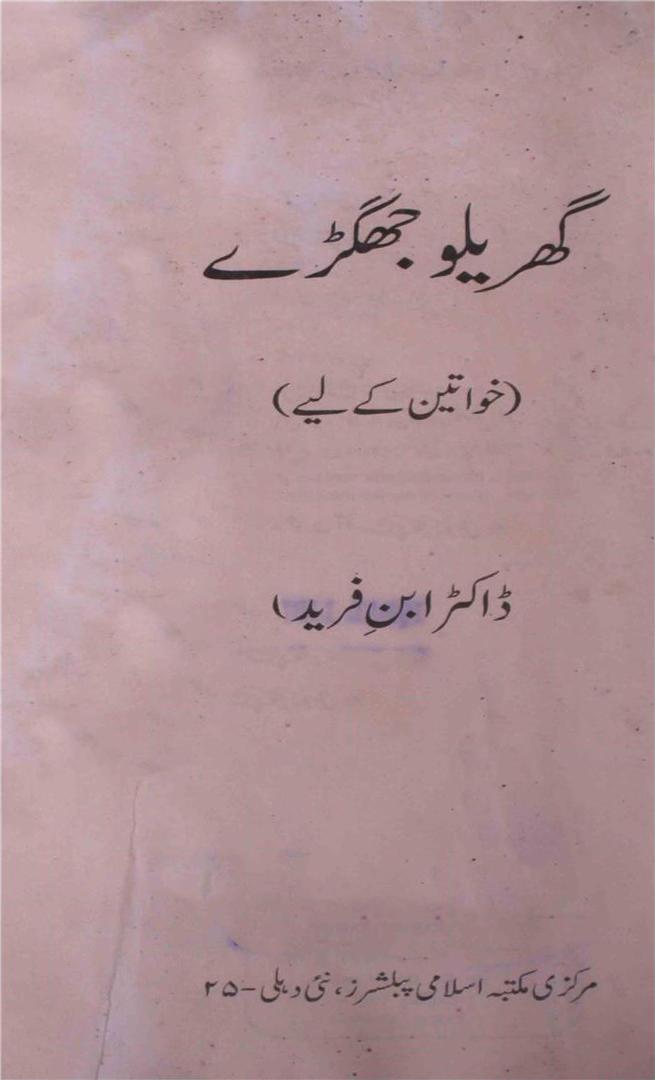 گھریلو جھگڑے
(خواتین کے لیے)
ڈاکٹر ابنِ فرید)
مرکزی مکتبہ اسلامی پبلشرز، نئی دہلی - ۲۵